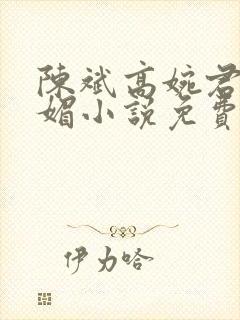 陳斌高婉君
媚小說免費
伊力哈